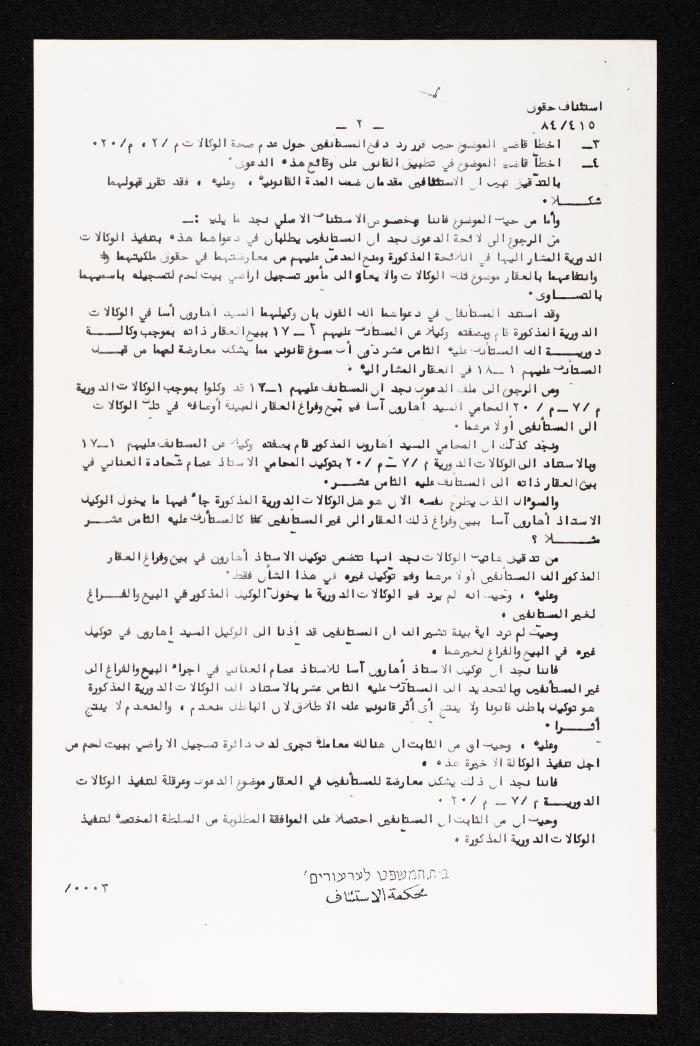 استئناف حقوق
٨٤/٤١٥
ـ ٢ ـ
٣ـ اخطأ قاضي الموضوع حيث قرر رد دفع المستأنفين حول عدم صحة الوكالات م/٢ ، م/٢٠٠
٤ـ اخطأ قاضي الموضوع في تطبيق القانون على وقائع هذه الدعوى٠
بالتدقيق تبين ان الاستئنافين مقدمان ضمن المدة القانونية ، وعليه ، فقد تقرر قبولهما
شكـــلا ٠
وأما من حيث الموضوع فاننا وبخصوص الاستئناف الاصلي نجد ما يلي :ـ
من الرجوع الى لائحة الدعوى نجد ان المستأنفين يطلبان في دعواهما هذه بتنفيذ الوكالات
الدورية المشار اليها في اللائحة المذكورة ومنع المدعى عليهم من معارضتهما في حقوق ملكيتهما
وانتفاعهما بالعقار موضوع تلك الوكالات والايعاز الى مأمور تسجيل اراضي بيت لحم لتسجيله باسميهما
بالتســاوى٠
وقد استند المستأنفان في دعواهما الى القول بان وكيلهما السيد أهارون آسا في الوكالات
الدورية المذكورة قام وبصفته وكيلا عن المستأنف عليهم ٢ـ١٧ ببيع العقار ذاته بموجب وكالــة
دوريــة الى المستأنف عليه الثامن عشر دون أى مسوغ قانوني مما يشكل معارضة لهما من قبــل
المستأنف عليهم ١ـ١٨ في العقار المشار اليه ٠
ومن الرجوع الى ملف الدعوى نجد ان المستأنف عليهم ١ـ١٣ قد وكلوا بموجب الوكالات الدورية
م/٧ ـ م/٢٠ المحامي السيد أهارون آسا في بيع وفراغ العقار المبينة أوصافه في تلك الوكالات
الى المستأنفين أو لامرهما ٠
ونجد كذلك ان المحامي السيد أهارون المذكور قام بصفته وكيلا عن المستأنف عليهم ١ـ١٧
وبالاستناد الى الوكالات الدورية م/٧ ـ م/٢٠ بتوكيل المحامي الاستاذ عصام شحادة العناني في
بيع العقار ذاته الى المستأنف عليه الثامن عشـــر ٠
والسوءال الذى يطرح نفسه الان هو هل الوكالات الدورية المذكورة جاء فيها ما يخول الوكيل
الاستاذ أهارون آسا ببيع وفراغ ذلك العقار الى غير المستأنفين كالمستأنف عليه الثامن عشــر
مثـــلا ؟
من تدقيق هاتيك الوكالات نجد انها تتضمن توكيل الاستاذ أهارون في بيع وفراغ العقار
المذكور الى المستأنفين أو لامرهما وفي توكيل غيره في هذا الشأن فقط٠
وعليه ، وحيث انه لم يرد في الوكالات الدورية ما يخول الوكيل المذكور في البيع والفــراغ
لغير المستأنفين ٠
وحيث لم ترد اية بينة تشير الى ان المستأنفين قد أذنا الى الوكيل السيد أهارون في توكيل
غيره في البيع والفراغ لغيرهما ٠
فاننا نجد ان توكيل الاستاذ أهارون آسا للاستاذ عصام العناني في اجراء البيع والفراغ الى
غير المستأنفين وبالتحديد الى المستأنف عليه الثامن عشر بالاستناد الى الوكالات الدورية المذكورة
هو توكيل باطل قانونا ولا ينتج أى أثر قانوني على الاطلاق لان الباطل منعدم ، والمنعدم لا ينتج
أثــرا ٠
وعليه ، وحيث ان من الثابت ان هنالك معاملة تجرى لدى دائرة تسجيل الاراضي ببيت لحم من
اجل تنفيذ الوكالة الاخيرة هذه ٠
فاننا نجد ان ذلك يشكل معارضة للمستأنفين في العقار موضوع الدعوى وعرقلة لتنفيذ الوكالات
الدوريــة م/٧ ـ م/٢٠ ٠
وحيث ان من الثابت ان المستأنفين احتصلا على الموافقة المطلوبة من السلطة المختصة لتنفيذ
الوكالات الدورية المذكورة ٠
בית המשפט לערעורים
محكمة الاستئناف
/٠٠٠٣